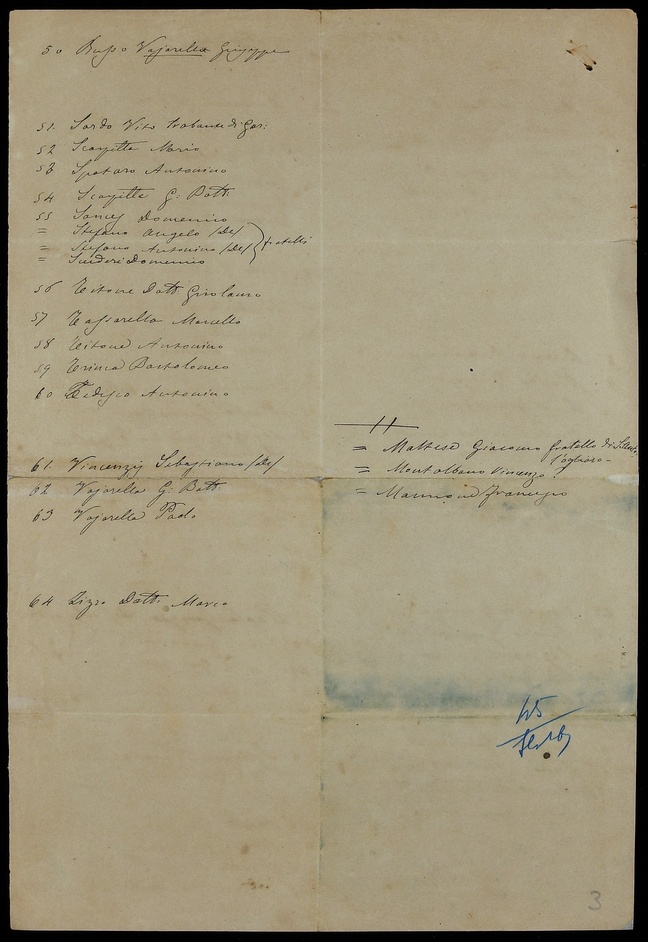 50 Russo Vajarella Giuseppe
51. Sardo Vito
52 Scarpitta Mario
53 Spataro Antonino
54 Scarpitta G: Batt:
55 Domenico
= Stefano Angelo /de/
= Stefano Antonino /de/ fratelli
= Domenico
56 Titone Dott. Girolamo
57 Tassarella Marcello
58 Titone Antonino
59 Trinca Bartolomeo
60 Tedesco Antonino
61. Sebastiano /de/
62 Vajarella G: Batt:
63 Vajarella Paolo
64 Rizzo Dott: Marco
= Maltese Giacomo fratello di
= Montalbano Vincenzo
= Francesco
45
3